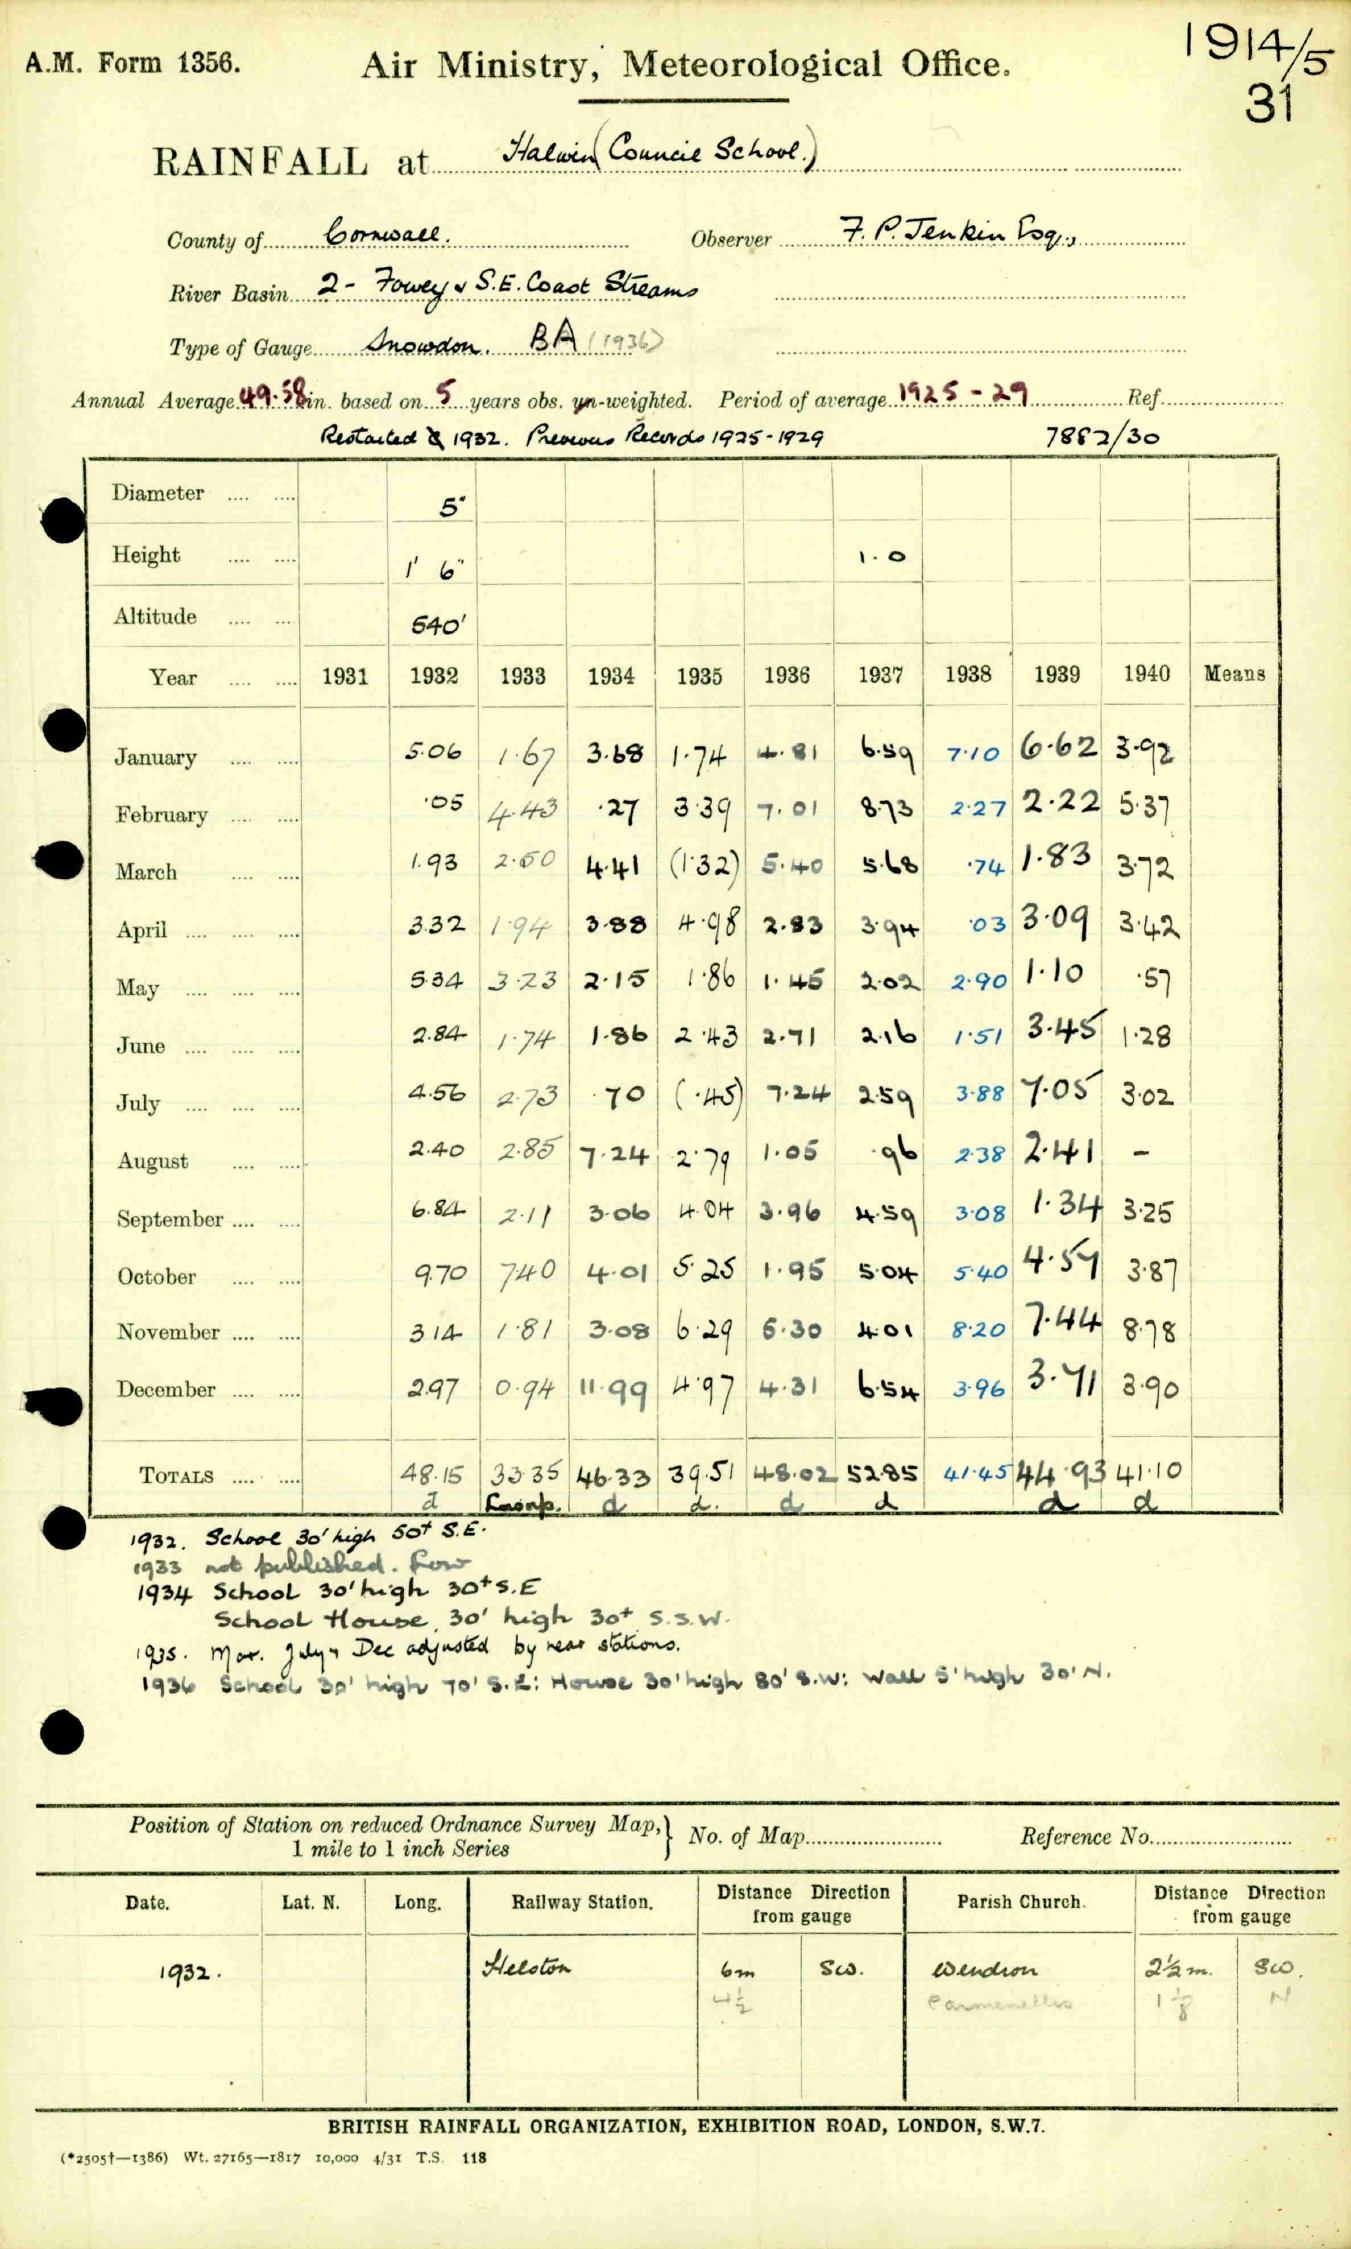 A.M. Form 1356. Air Ministry, Meteorological Office. 1914/5
31
RAINFALL at Halwin (Council School.)
County of Cornwall. Observer F. P. Jenkin Esq.,
River Basin 2 - Fowey & S.E. Coast Streams
Type of Gauge Snowdon. BA (1936)
Annual Average 49.58 in. based on 5 years obs. un-weighted. Period of average 1925 - 29 Ref.
Restarted 1932. Previous Records 1925-1929 7882/30
Diameter 5"
Height 1' 6" 1.0
Altitude 540'
Year 1931 1932 1933 1934 1935 1936 1937 1938 1939 1940 Means
January 5.06 1.67 3.68 1.74 4.81 6.59 7.10 6.62 3.92
February .05 4.43 .27 3.39 7.01 8.73 2.27 2.22 5.37
March 1.93 2.50 4.41 (1.32) 5.40 5.68 .74 1.83 3.72
April 3.32 1.94 3.88 4.98 2.83 3.94 .03 3.09 3.42
May 5.34 3.23 2.15 1.86 1.45 2.02 2.90 1.10 .57
June 2.84 1.74 1.86 2.43 2.71 2.16 1.51 3.45 1.28
July 4.56 2.73 .70 (.45) 7.24 2.59 3.88 7.05 3.02
August 2.40 2.85 7.24 2.79 1.05 .96 2.38 2.41 -
September 6.84 2.11 3.06 4.04 3.96 4.59 3.08 1.34 3.25
October 9.70 7.40 4.01 5.25 1.95 5.04 5.40 4.57 3.87
November 3.14 1.81 3.08 6.29 5.30 4.01 8.20 7.44 8.78
December 2.97 0.94 11.99 4.97 4.31 6.54 3.96 3.71 3.90
TOTALS 48.15 33.35 46.33 39.51 48.02 52.85 41.45 44.93 41.10
d d d. d d d d
1932. School 30' high 50+ S.E.
1933 not published. Low
1934 School 30' high 30+ S.E
School House, 30' high 30+ S.S.W.
1935. Mar. July & Dec adjusted by near stations.
1936 School 30' high 70' S.E: House 30' high 80' S.W: Wall 5' high 30' N.
Position of Station on reduced Ordnance Survey Map,
1 mile to 1 inch Series } No. of Map Reference No.
Date. Lat. N. Long. Railway Station. Distance Direction from gauge Parish Church. Distance Direction from gauge
1932. Helston 6m SW. Wendron 2½ m. SW.
4½ Carmenellis 1⅛ N
BRITISH RAINFALL ORGANIZATION, EXHIBITION ROAD, LONDON, S.W.7.
(*2505†—1386) Wt. 27165—1817 10,000 4/31 T.S. 118